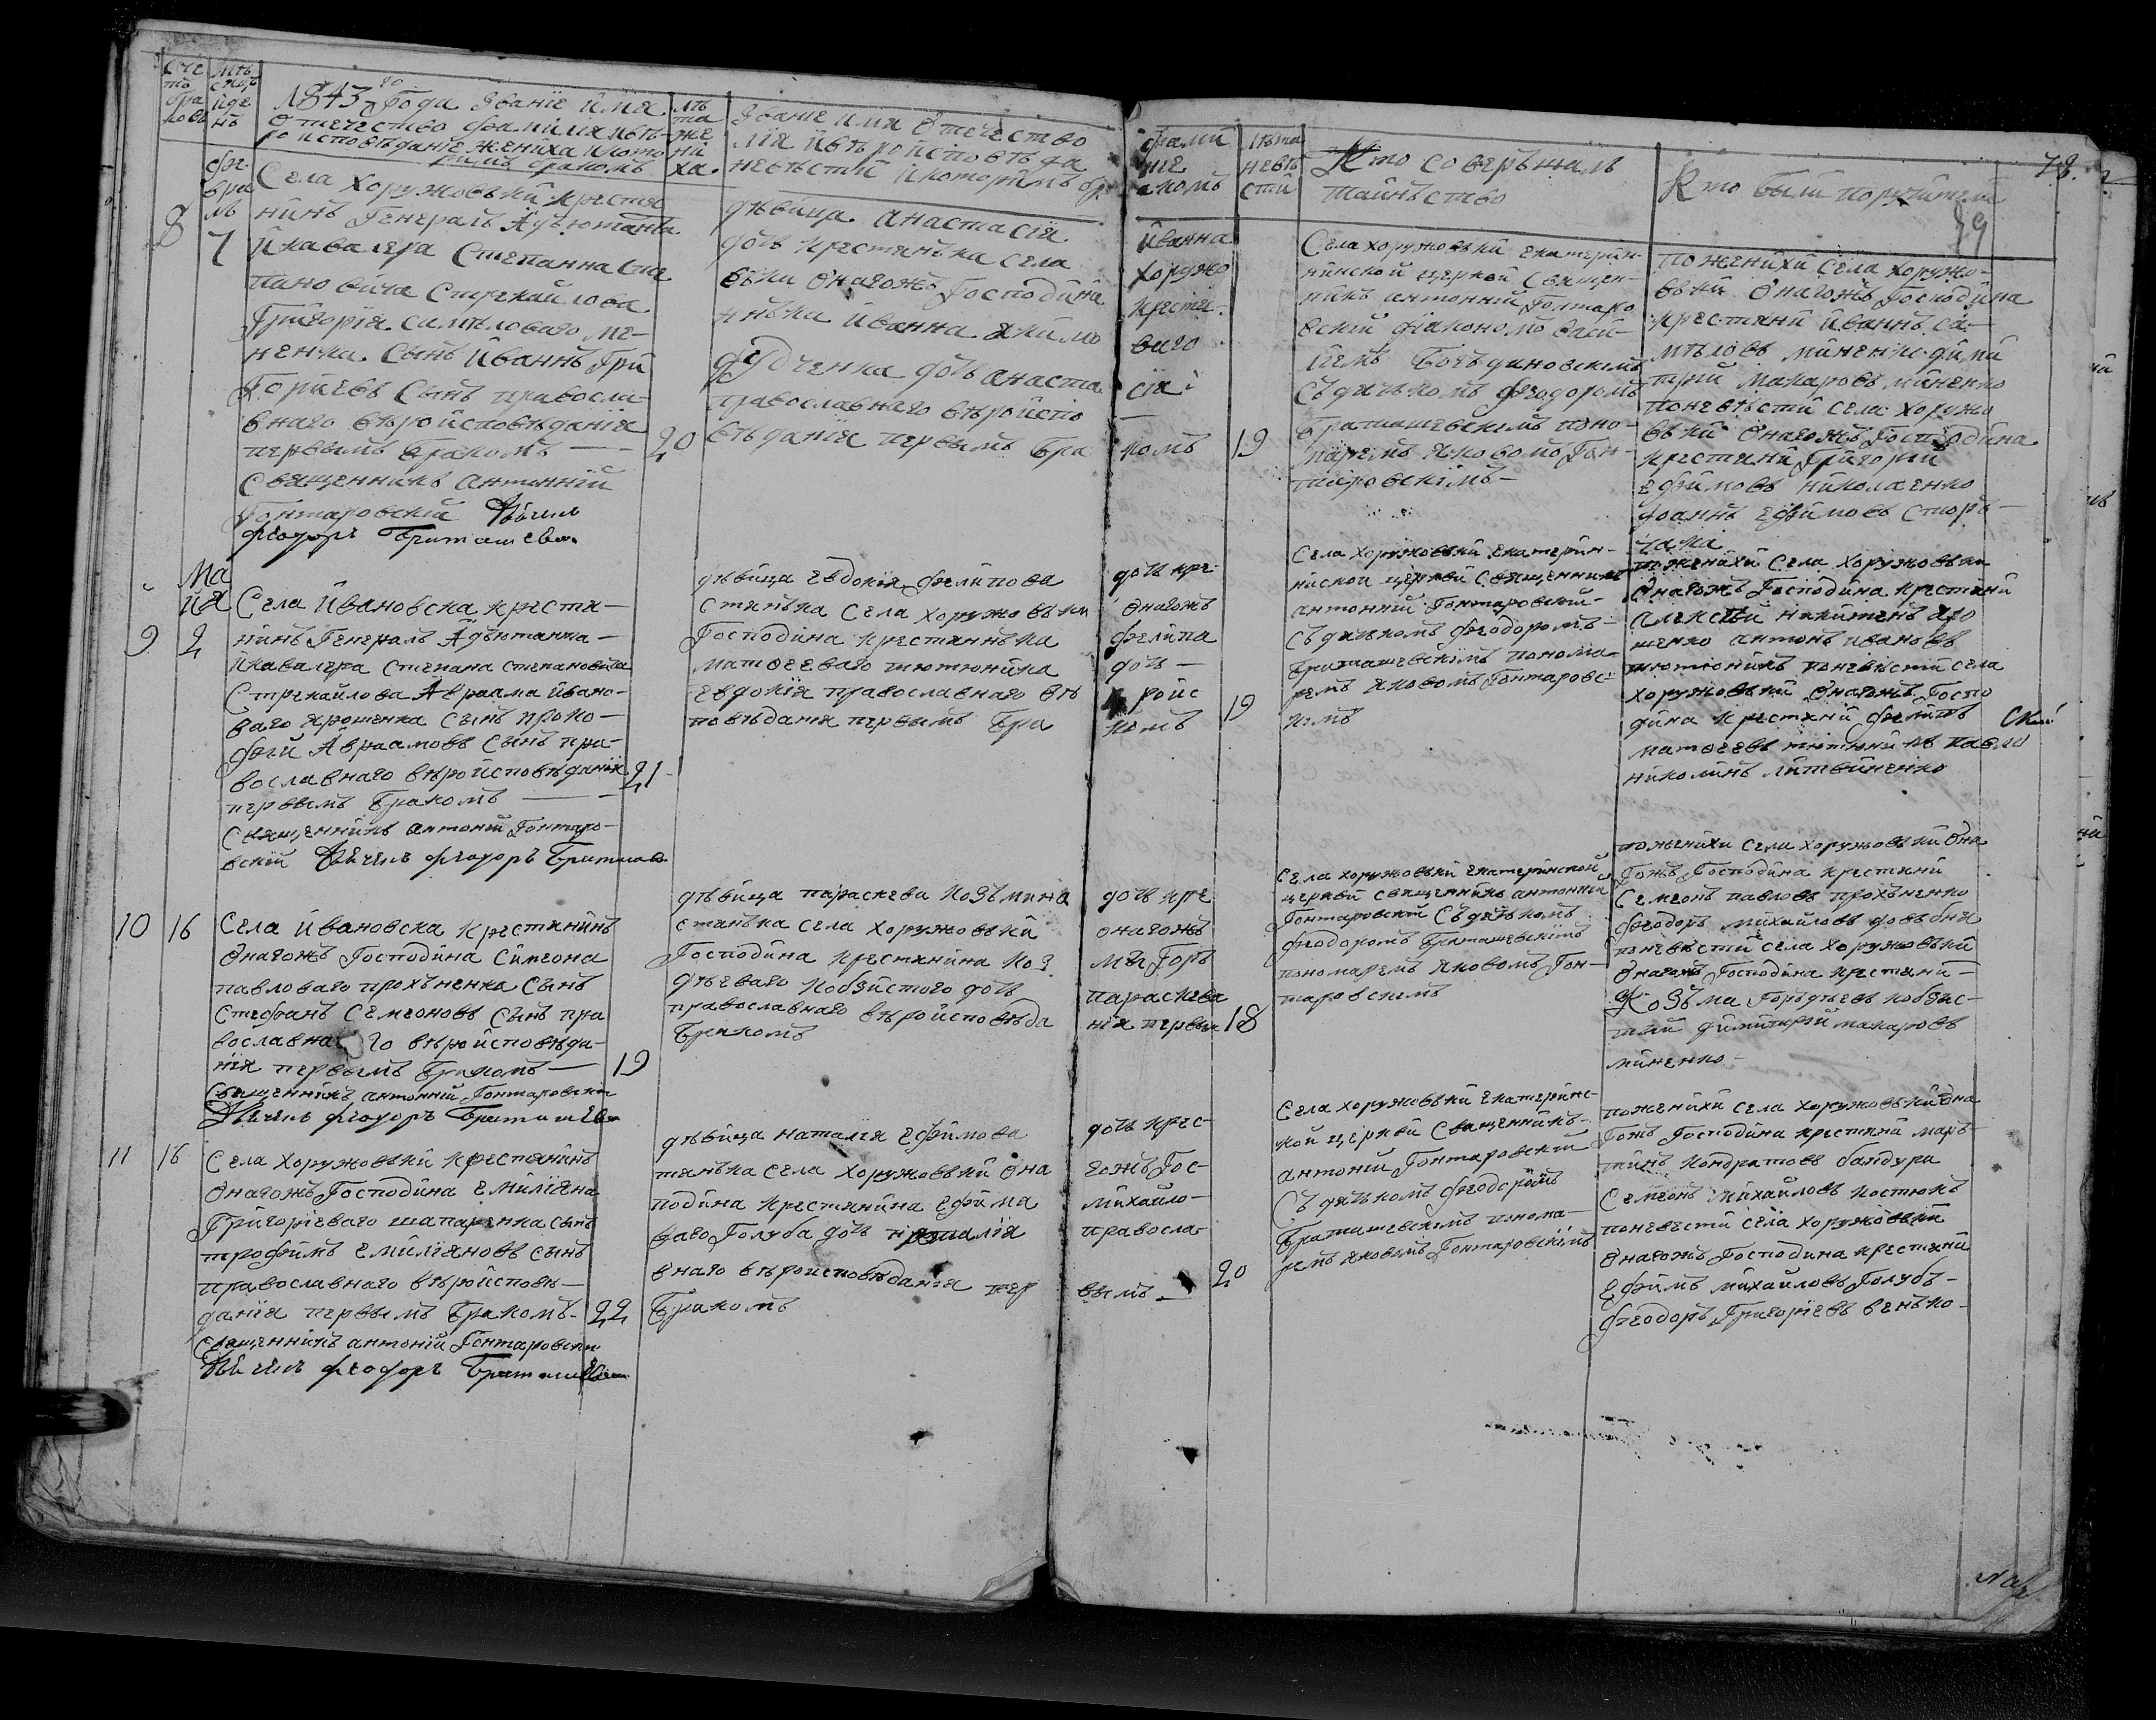 Сче
то
бра
ковъ
Мѣ
сяцъ
и де
нь
1843го Года Званiе имя
Отечество фамилiя и вѣ-
роисповѣданiе жениха и кото
римъ бракомъ
лѣ
та
же
ни
ха.
Званiе имя Отечество
лiя и вѣроисповѣда
невѣсти и которимъ бр.
фами
нiе
акомъ
лѣта
невѣ
сти
Кто совершалъ
таинъство
Кто были поручители
78.
79
фе-
вра
ль
8
7
Села Хоружовъки крестя
нинъ Генералъ Адъютанта
и кавалера Степанна Сте
пановича Стрекайлова
Григорiя самъловаго ме-
ненка сынъ иваннъ Гри
Горiевъ Сынъ правосла-
внаго вѣроисповѣданiя
первымъ бракомъ —
20
Священникъ Антонiй
Гонтаровскiй Дячекъ
Феодоръ Браташевск.
дѣвица анастасiя
дочь крестянька села
въки Онагожъ Господина
нъка иванна якимо
дудченка дочь анаста
православнаго вѣроиспо
вѣданiя первымъ бра
иванна
хоружо
крестя-
ваго
сiя
—
комъ
19
Села хоружовъки екатерин-
нинской церкви Священ-
никъ антоннiй Гонтаро
вскiй дiакономъ Васи-
лiемъ Богъдановскимъ
Съ дячькомъ феодоромъ
браташевскимъ поно-
маремъ Яковомъ Гон-
таровскимъ —
по женихи Села хоружо-
въки Онагожъ Господина
крестяни Иваннъ са-
мъловъ миненко дими
трiй Макаровъ миненко
по невѣсти села хоружо
въки Онагожъ Господина
крестяни Григорiй
Ефимовъ николаенко
Иоаннъ ефимовъ сторо-
чака
Ма
ия
9
2
Села Ивановска крестя-
нинъ Генералъ Адъютанта
и кавалера степана степановича
Стрекайлова Авраама ивано-
ваго ярошенка сынъ проко-
фiй Авраамовъ сынъ пра-
вославнаго вѣроисповѣданiя
21
первымъ бракомъ —
Священникъ антонiй Гонтаро-
вскiй Дячекъ феодоръ Браташев
дѣвица евдокiя филипова
стянька села хоружовъки
Господина крестянъка
матвеeваго тютюника
евдокiя православнаго вѣ
повѣданiя первымъ бра
дочь кре-
онагожъ
филипа
дочь —
роис
комъ
19
Села хоружовъки екатерин-
ниской церкви Священникъ
антонiй Гонтаровскiй
Съ дячькомъ феодоромъ
Браташевскимъ понома-
ремъ яковомъ Гонтаровс-
кимъ
по женихи Села хоружовъки
Онагожъ Господина крестяни
алексѣй никитинъ яро
шенко антонъ ивановъ
тютюникъ по невѣсти села
хоружовъки Онагожъ Госпо
дина крестяни филипъ
матвеевъ тютюникъ павло
николинъ литвиненко
10
16
Села ивановска крестянинъ
Онагожъ Господина Симеона
павловаго прохъненка Сынъ
стефанъ Семеоновъ сынъ пра
вославнаго вѣроисповѣда-
нiя первымъ бракомъ —
19
Священникъ антонiй Гонтаровскiй
Дячекъ феодоръ Браташев
дѣвица параскева козъмина
стянька села хоружовъки
Господина крестянина коз
дѣеваго кобзистого дочь
православнаго вѣроисповѣда
Бракомъ
дочь кре
онагожъ
мы Горъ
параскева
нiя первым
18
Села хоружовъки екатеринской
церкви священникъ антонiй
Гонтаровскiй Съ дячькомъ
феодоромъ Браташевскимъ
пономаремъ яковомъ Гон-
таровскимъ
по женихи села хоружовъки Она
Гожъ Господина крестяни
Семеонъ павловъ прохъненко
феодоръ михайловъ довъбня
по невѣсти села хоружовъки
Онагожъ Господина крестяни-
Козъма Горъдѣевъ кобзис-
тый димитрiй макаровъ
миненко —
11
16
Села хоружовъки крестянинъ
Онагожъ Господина емилiяна
Григорiеваго шапаренка сынъ
трофимъ емилiяновъ сынъ
православнаго вѣроисповѣ-
данiя первымъ бракомъ-
22
Священникъ антонiй Гонтаровски
Дячекъ феодоръ Браташев
дѣвица наталiя ефимова
тянька села хоружовъки Она
подина крестянина ефима
ваго Голуба дочь наталiя
внаго вѣроисповѣданiя пер
Бракомъ
дочь крес-
гожъ Гос-
михайло-
правосла-
вымъ —
20
Села хоружовъки екатеринс-
кой церкви Священникъ-
антонiй Гонтаровскiй
Съ дячькомъ феодоромъ
Браташевскимъ понома-
ремъ яковомъ Гонтаровскимъ
по женихи села хоружовъки Она
Гожъ Господина крестяни мар-
тинъ Кондратовъ бандура
Семеонъ михайловъ костюкъ
по невести села хоружовъки
Онагожъ Господина крестяни
Ефимъ михайловъ Голубъ-
феодоръ Григорiевъ венъко-